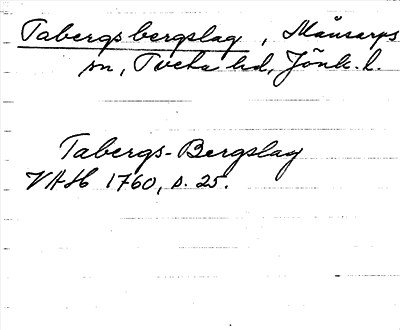 Tabergsbergslag, Månsarps
sn, Tveta hd, Jönk. l.
Tabergs-Bergslag
VAH 1760, s. 25.